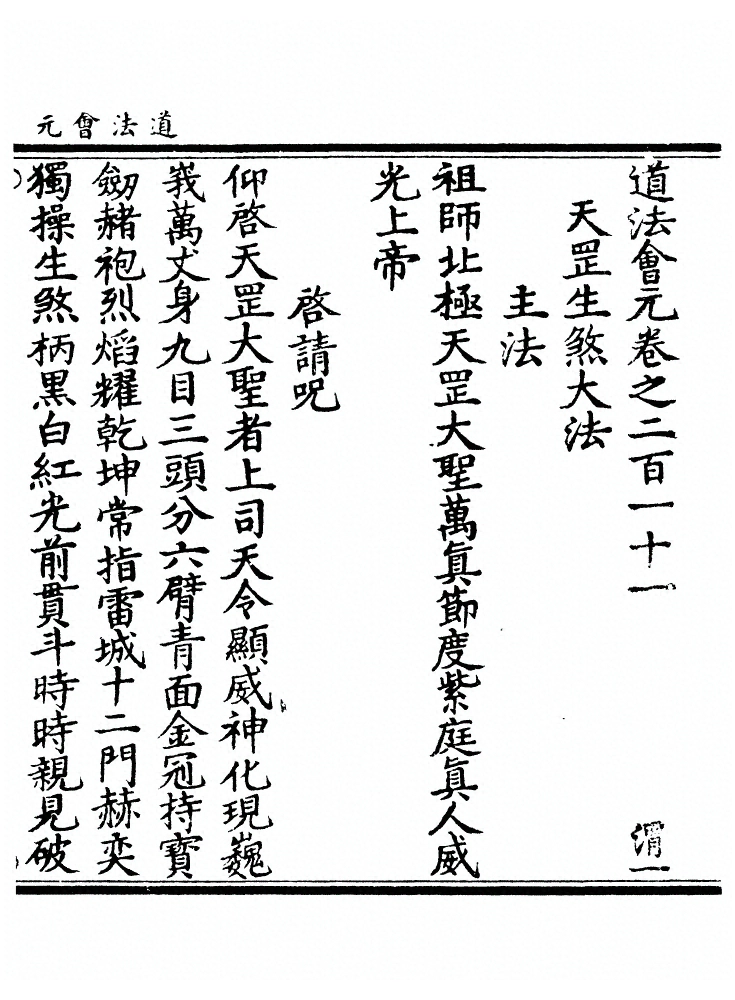 道法會元
道法會元卷之二百一十一
渭一
天罡生煞大法
主法
祖師北極天罡大聖萬真節度紫庭真人威
光上帝
啓請呪
仰啓天罡大聖者上司天令顯威神化現巍
峩萬丈身九目三頭分六臂青面金冠持寶
劔赭袍烈熖耀乾坤常指雷城十二門赫奕
獨操生煞柄黑白紅光前貫斗時時親見破